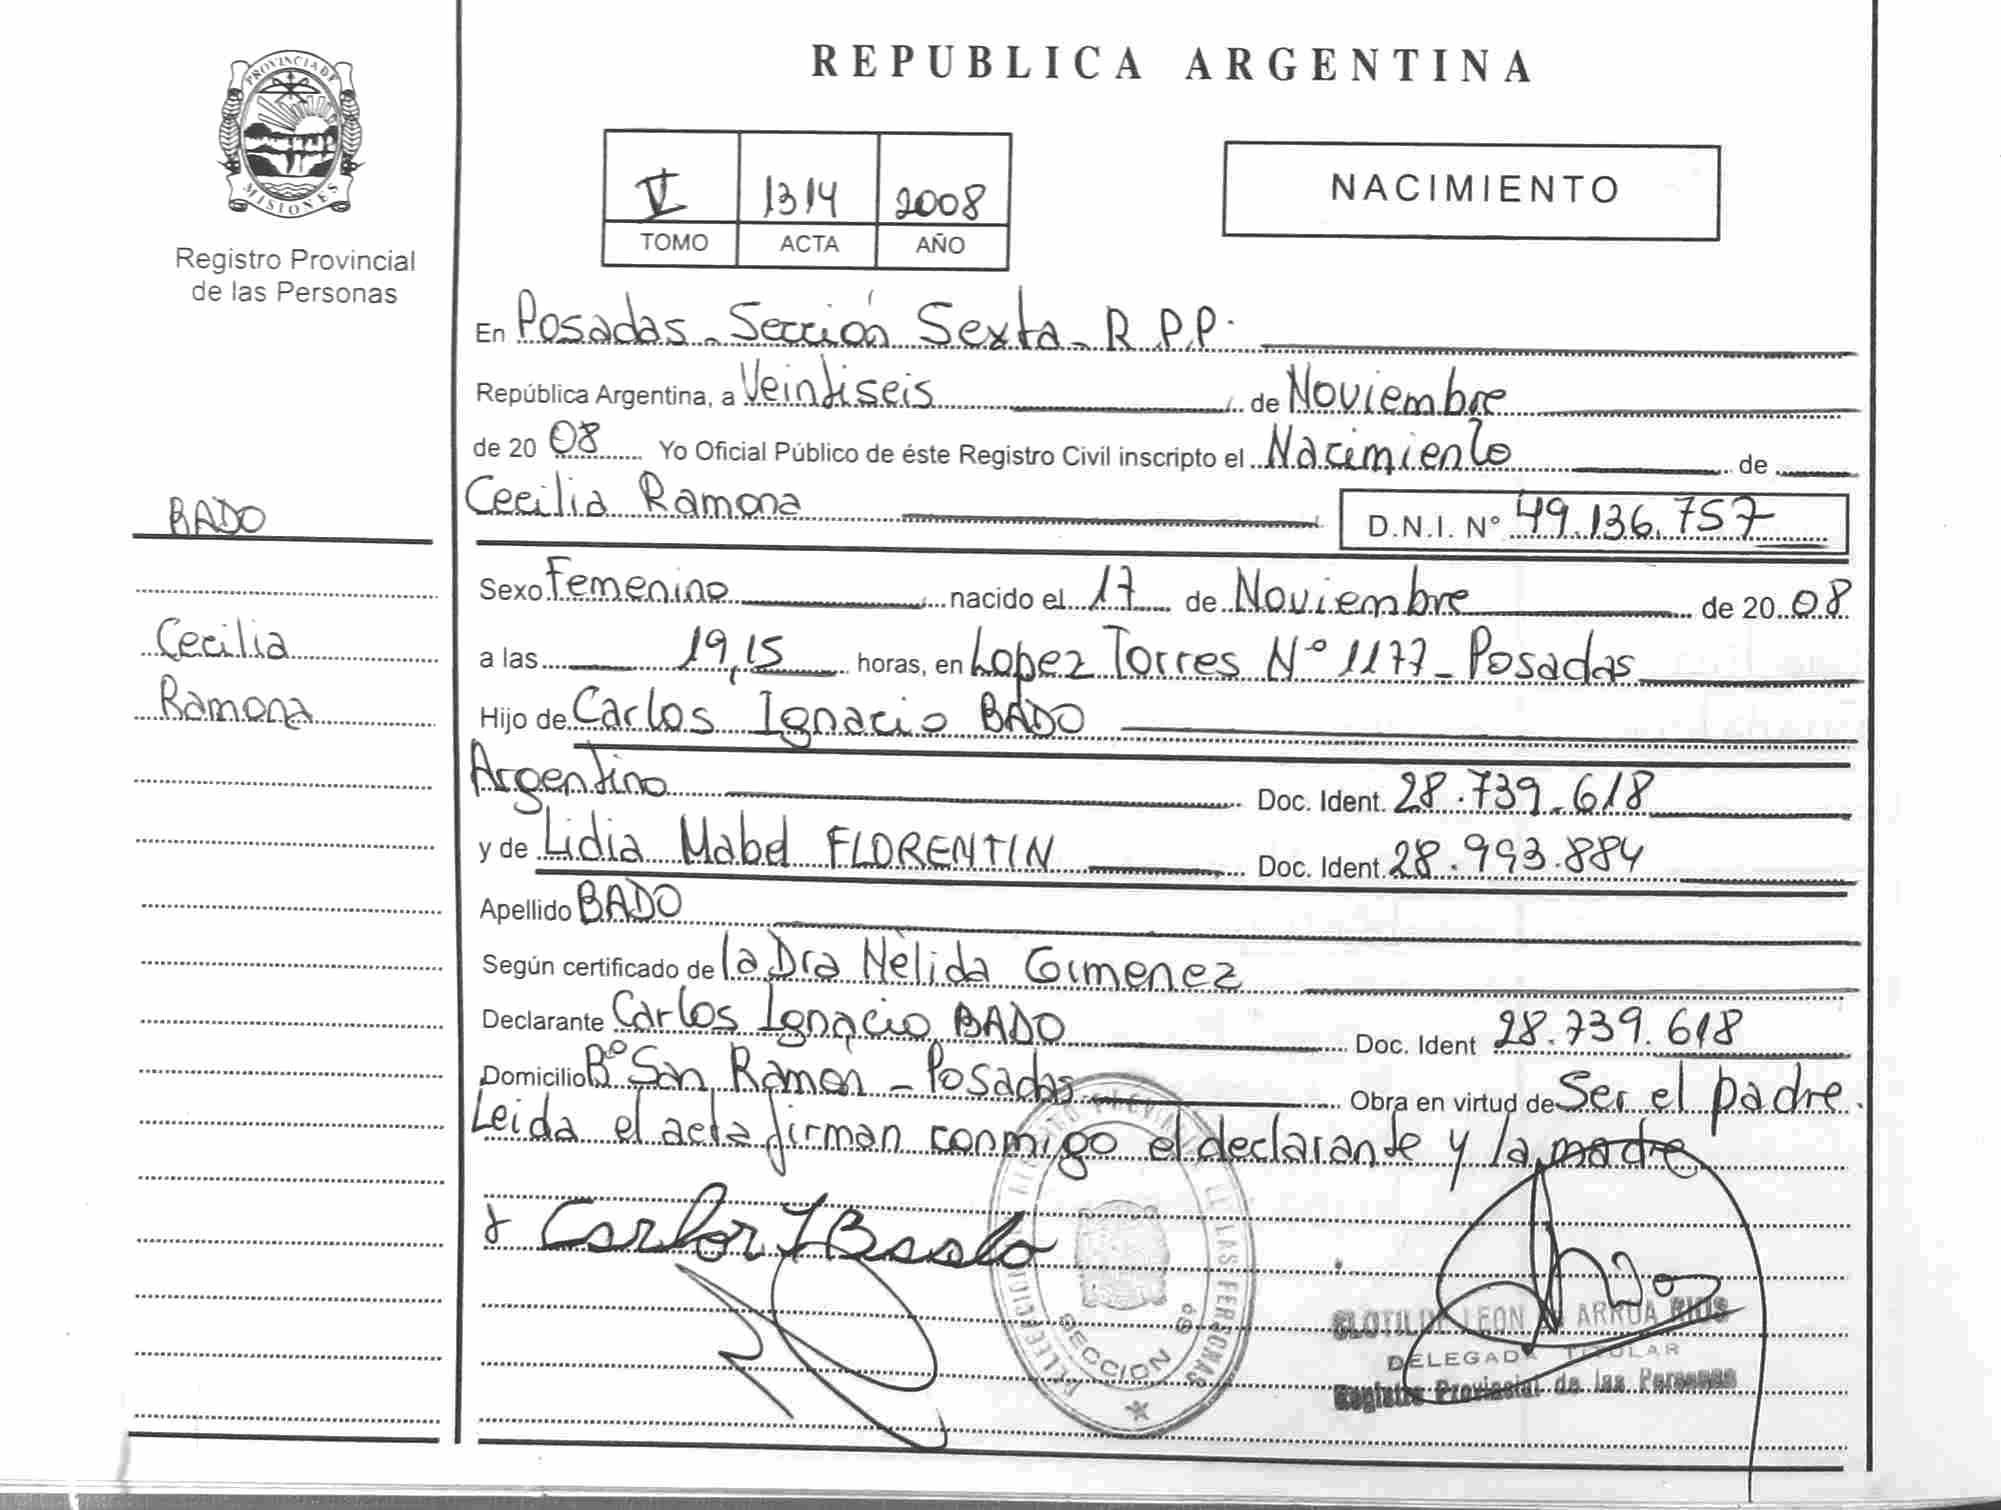 PROVINCIA DE
MISIONES
Registro Provincial
de las Personas
BADO
Cecilia
Ramona
REPUBLICA ARGENTINA
V 1314 2008
TOMO ACTA AÑO
NACIMIENTO
En Posadas - Sección Sexta - R.P.P.
República Argentina, a Veintiseis de Noviembre
de 2008 Yo Oficial Público de éste Registro Civil inscripto el Nacimiento de
Cecilia Ramona D.N.I. N° 49.136.757
Sexo Femenino nacido el 17 de Noviembre de 2008
a las 19,15 horas, en Lopez Torres N° 1177 - Posadas
Hijo de Carlos Ignacio BADO
Argentino Doc. Ident. 28.739.618
y de Lidia Mabel FLORENTIN Doc. Ident. 28.993.884
Apellido BADO
Según certificado de la Dra Nèlida Gimenez
Declarante Carlos Ignacio BADO Doc. Ident 28.739.618
Domicilio B° San Ramòn - Posadas Obra en virtud de Ser el padre.
Leida el acta firman conmigo el declarante y la madre
Carlos I Bado
SECCION 6º
CLOTILDE LEON DE ARRUA RIOS
DELEGADA TITULAR
Registro Provincial de las Personas